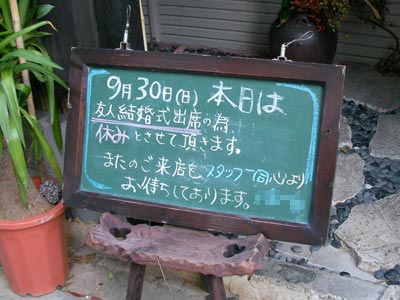 9月30日(日) 本日は
友人結婚式出席の為、
休みとさせて頂きます。
またのご来店をスタッフ一同心より
お待ちしております。